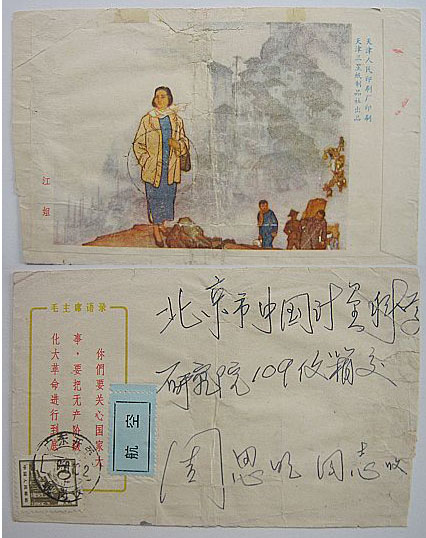 天津人民印刷厂印刷
天津三星纸制品社出品
江姐
毛主席语录
你們要关心国家大
事,要把无产阶级
化大革命进行到底
航空
北京市中国计量科学
研究院109信箱交
周思 同志收